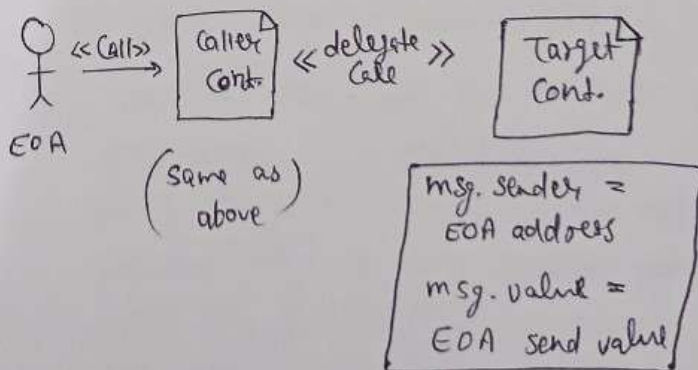 <<Call>>
EOA
Caller
Cont.
<<delegate
Call>>
Target
Cont.
(Same as
above)
msg. sender =
EOA address
msg. value =
EOA send value